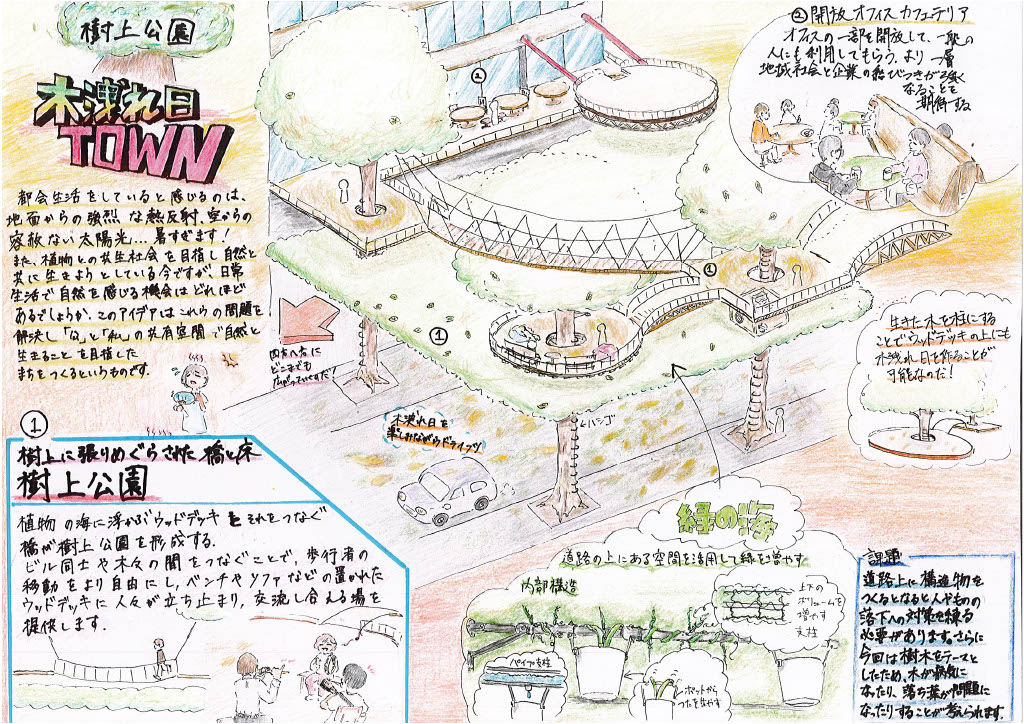 樹上公園
木洩れ日
TOWN
都会生活をしていると感じるのは、
地面からの強烈な熱反射、空からの
容赦ない太陽光…暑すぎます！
また、植物との共生社会を目指し自然と
共に生きようとしている今ですが、日常
生活で自然を感じる機会はどれほど
あるでしょうか。このアイデアはこれらの問題を
解決し「公」と「私」の共有空間で自然と
生きることを目指した
まちをつくるというものです。
①
樹上に張りめぐらされた橋と床
樹上公園
植物の海に浮かぶウッドデッキとそれをつなぐ
橋が樹上公園を形成する。
ビル同士や木々の間をつなぐことで、歩行者の
移動をより自由にし、ベンチやソファなどの置かれた
ウッドデッキに人々が立ち止まり、交流し合える場を
提供します。
②開放オフィスカフェテリア
オフィスの一部を開放して、一般の
人にも利用してもらう。より一層
地域社会と企業の結びつきが強く
なることを
期待する
②
①
①
四方八方に
どこまでも
広がっていくのだ！
木洩れ日を
楽しみながらドライブ♪
ハシゴ
生きた木を柱にする
ことでウッドデッキの上にも
木洩れ日を作ることが
可能なのだ！
緑の海
道路の上にある空間を活用して緑を増やす
内部構造
上下の
ボリュームを
増やす
支柱
パイプ支柱
ポットから
つたを生やす
課題
道路上に構造物を
つくるとなると人やもの
の落下への対策を練る
必要があります。さらに
今回は樹木をテーマと
したため、木が病気に
なったり、落ち葉が問題に
なったりすることが考えられます。